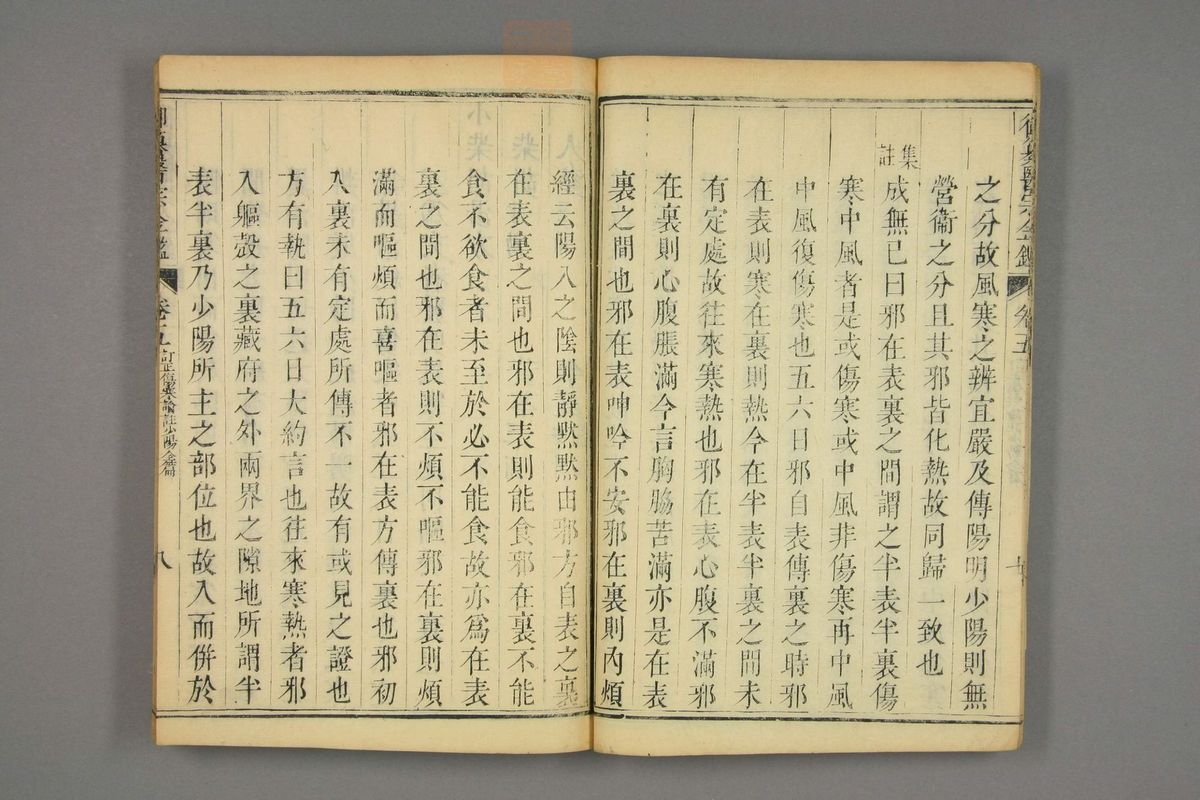 御纂醫宗金鑑 卷五
之分故風寒之辨宜嚴及傳陽明少陽則無
營衞之分且其邪皆化熱故同歸一致也
集註
成無已曰邪在表裏之間謂之半表半裏傷
寒中風者是或傷寒或中風非傷寒再中風
中風復傷寒也五六日邪自表傳裏之時邪
在表則寒在裏則熱今在半表半裏之間未
有定處故往來寒熱也邪在表心腹不滿邪
在裏則心腹脹滿今言胸脇苦滿亦是在表
裏之間也邪在表呻吟不安邪在裏則內煩
經云陽入之陰則靜默默由邪方自表之裏
在表裏之間也邪在表則能食邪在裏不能
食不欲食者未至於必不能食故亦爲在表
裏之間也邪在表則不煩不嘔邪在裏則煩
滿而嘔煩而喜嘔者邪在表方傳裏也邪初
入裏未有定處所傳不一故有或見之證也
方有執曰五六日大約言也往來寒熱者邪
入軀殼之裏藏府之外兩界之隙地所謂半
表半裏乃少陽所主之部位也故入而併於
御纂醫宗金鑑 卷五 訂正傷寒論註少陽全篇 八